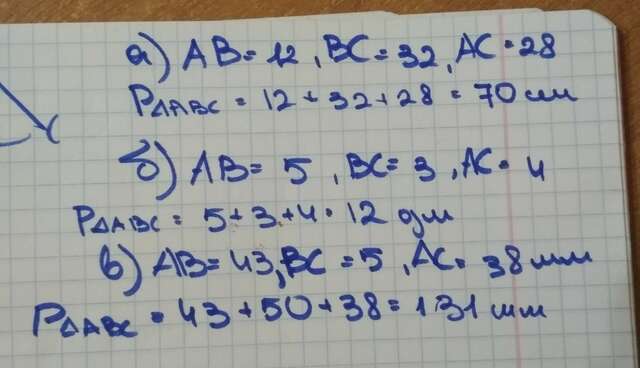 а) AB = 12 , BC = 32 , AC = 28
P△ABC = 12 + 32 + 28 = 70 см
б) AB = 5 , BC = 3 , AC = 4
P△ABC = 5 + 3 + 4 = 12 дм
в) AB = 43 , BC = 5 , AC = 38 мм
P△ABC = 43 + 50 + 38 = 131 мм